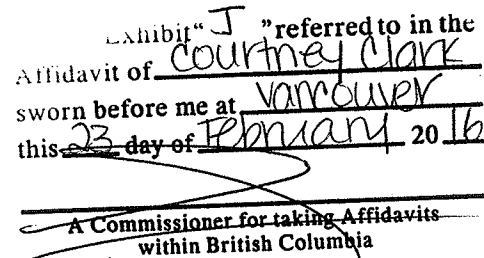 Exhibit "J" referred to in the
Affidavit of Courtney Clark
sworn before me at Vancouver
this 23 day of February 2016
A Commissioner for taking Affidavits
within British Columbia